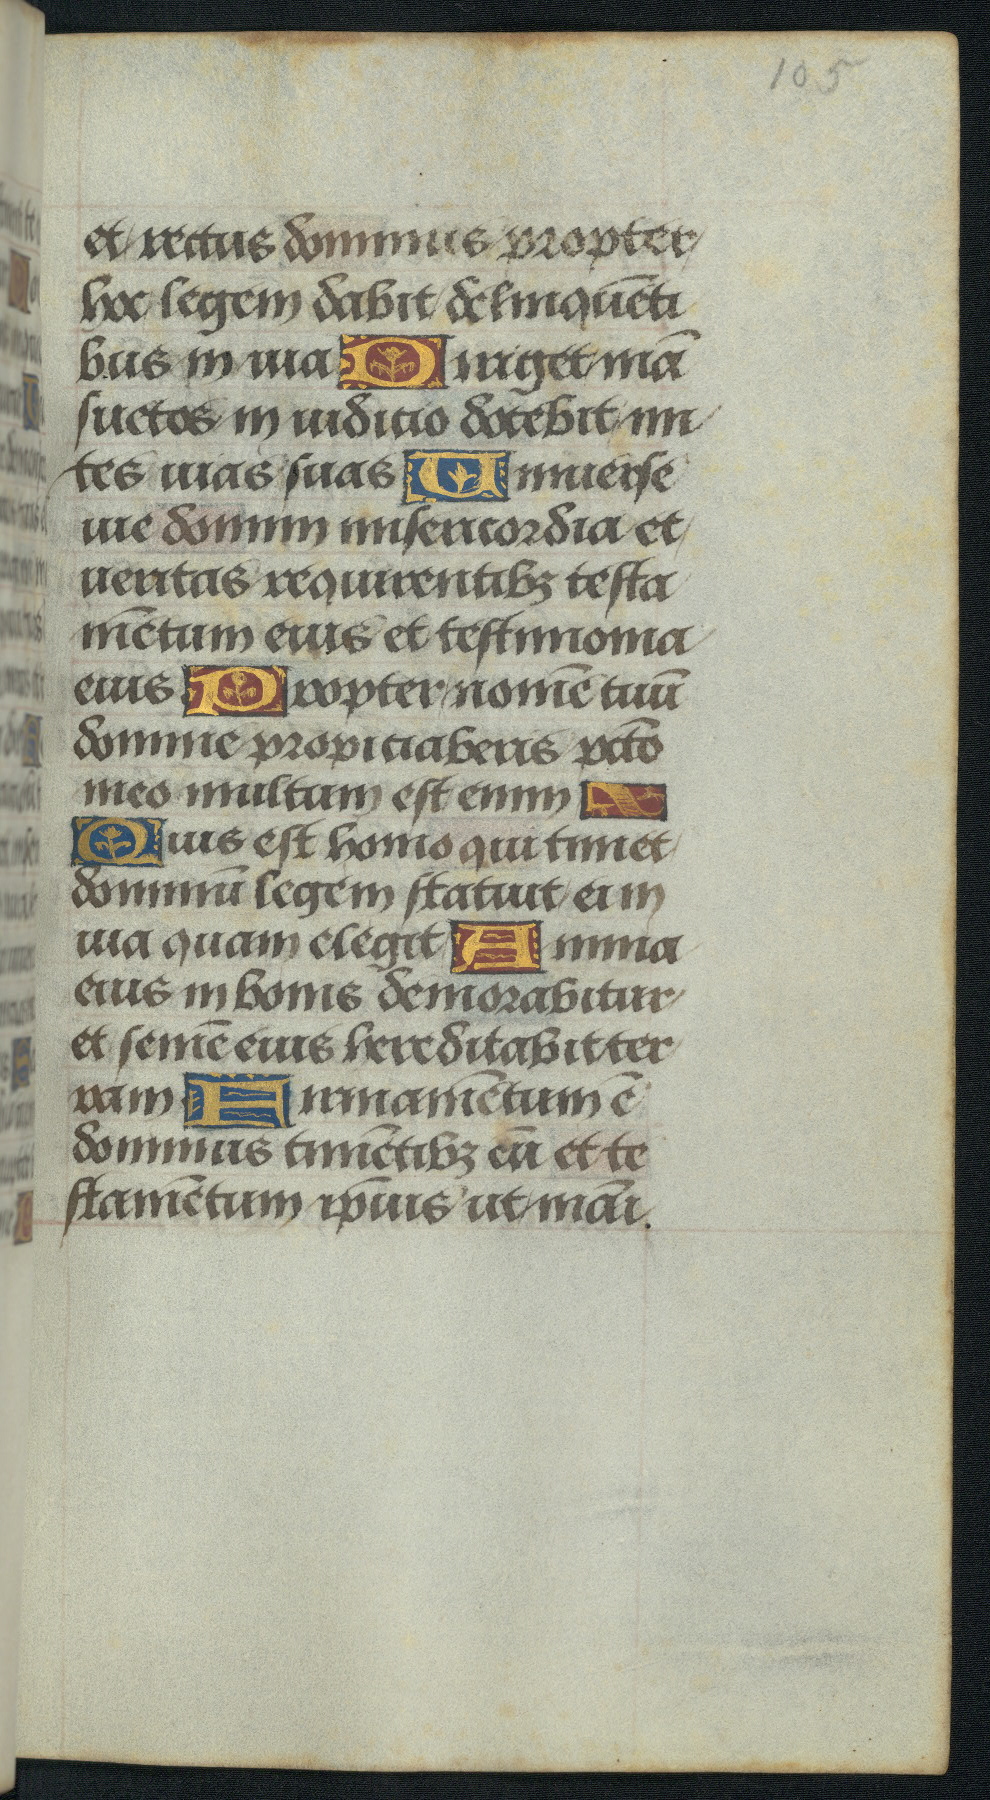 105
et rectus dominus propter
hoc legem dabit delinquēti
bus in via Diriget mā
suetos in iudicio docebit mi
tes vias suas Universe
vie domini misericordia et
veritas requirentibꝫ testa
mētum eius et testimonia
eius Propter nomē tuū
domine propiciaberis pcto
meo multum est enim
Quis est homo qui timet
dominū legem statuit ei in
via quam elegit Anima
eius in bonis demorabitur
et semē eius hereditabit ter
ram Firmamētum ē
dominus timētibꝫ eū et te
stamētum ipius ut māi.